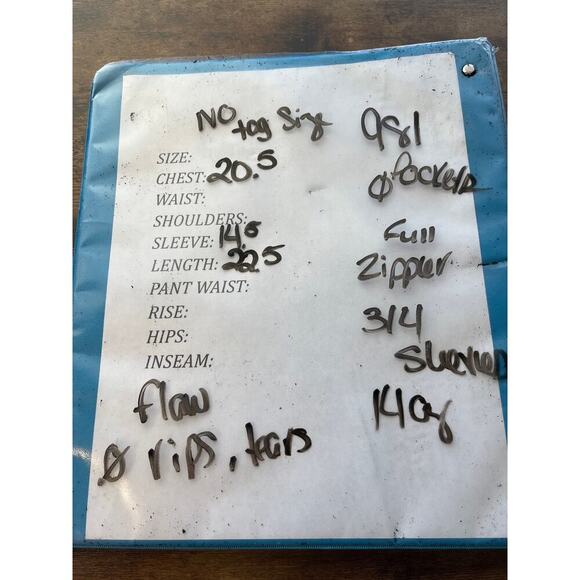 NO
tag Size
981
SIZE:
CHEST: 20.5
Ø Pockets
WAIST:
SHOULDERS:
SLEEVE: 14.5
Full
LENGTH: 22.5
Zipper
PANT WAIST:
RISE:
3/4
HIPS:
Sleeves
INSEAM:
flaw
14oz
Ø rips, tears